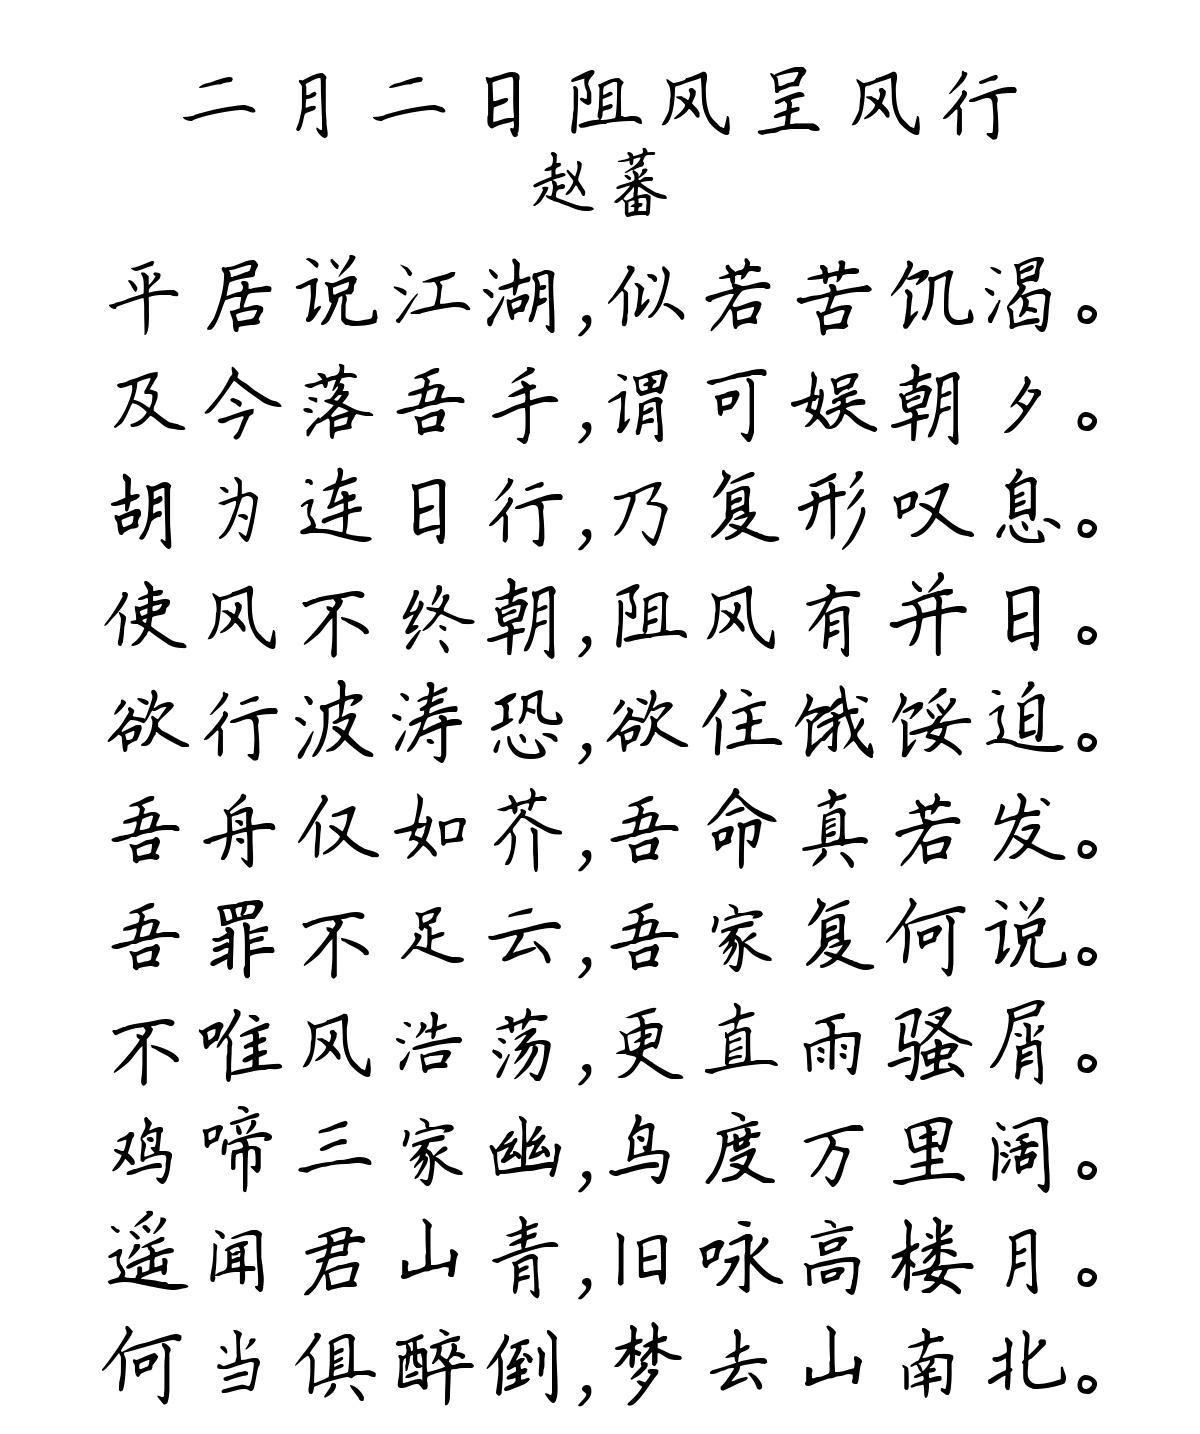 二月二日阻风呈风行
赵蕃
平居说江湖,似若苦饥渴。
及今落吾手,谓可娱朝夕。
胡为连日行,乃复形叹息。
使风不终朝,阻风有并日。
欲行波涛恐,欲住饿馁迫。
吾舟仅如芥,吾命真若发。
吾罪不足云,吾家复何说。
不唯风浩荡,更直雨骚屑。
鸡啼三家幽,鸟度万里阔。
遥闻君山青,旧咏高楼月。
何当俱醉倒,梦去山南北。